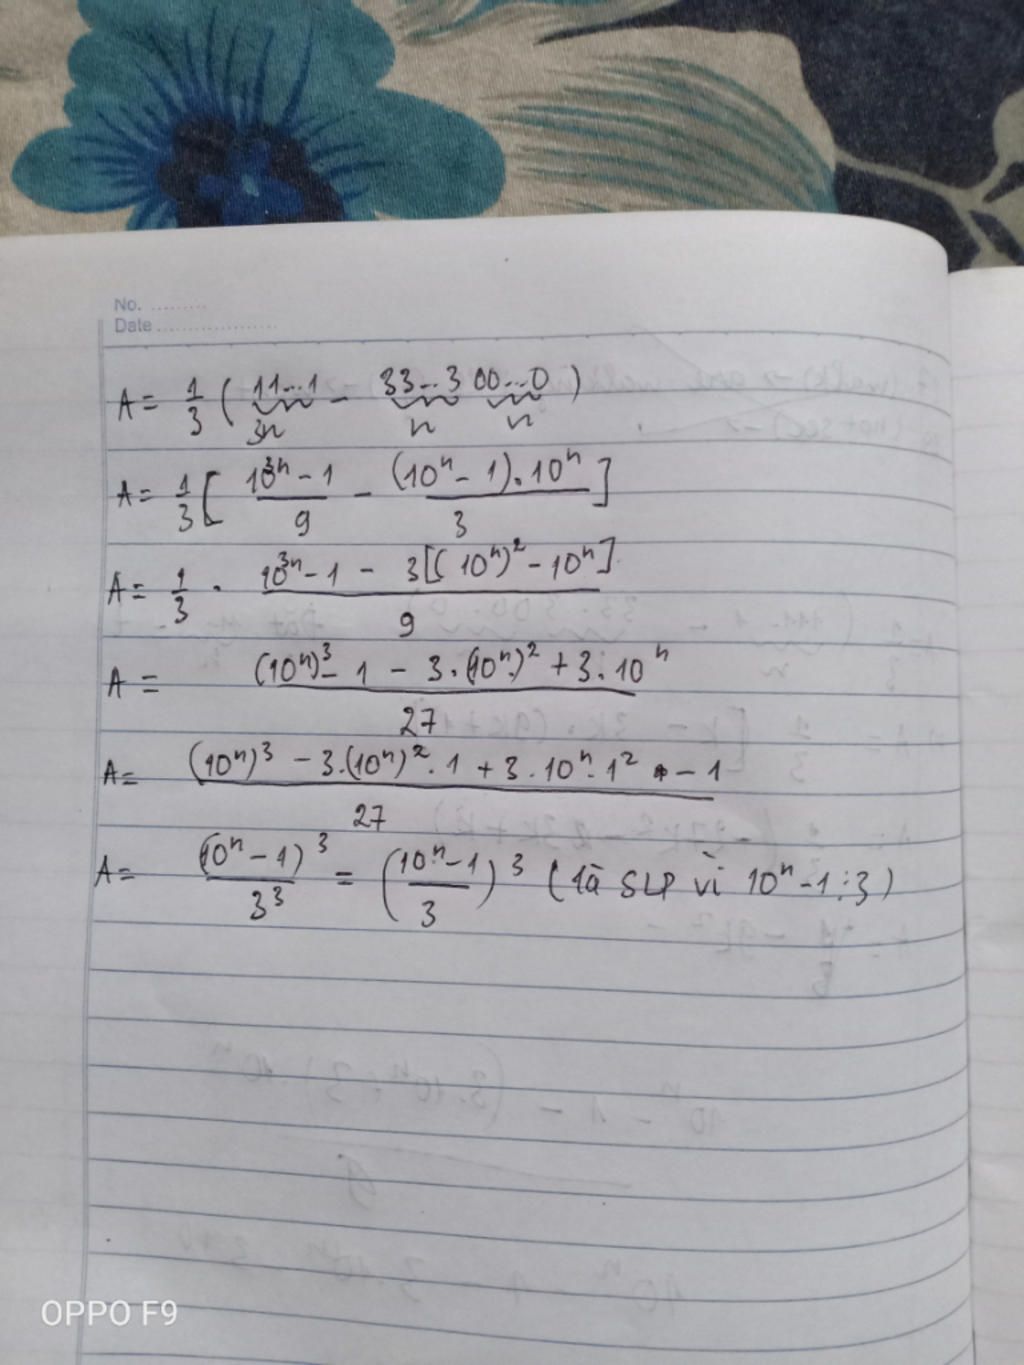 No. .........
Date ...................
A = 1/3 ( 11...1 - 33...3 00...0 )
3n n n
A = 1/3 [ (10³ⁿ - 1)/9 - ((10ⁿ - 1).10ⁿ)/3 ]
A = 1/3 . (10³ⁿ - 1 - 3[(10ⁿ)² - 10ⁿ])/9
A = ((10ⁿ)³ - 1 - 3.(10ⁿ)² + 3.10ⁿ)/27
A = ((10ⁿ)³ - 3.(10ⁿ)².1 + 3.10ⁿ.1² - 1)/27
A = (10ⁿ - 1)³/3³ = ((10ⁿ - 1)/3)³ (là SLP vì 10ⁿ - 1 ⋮ 3)
OPPO F9